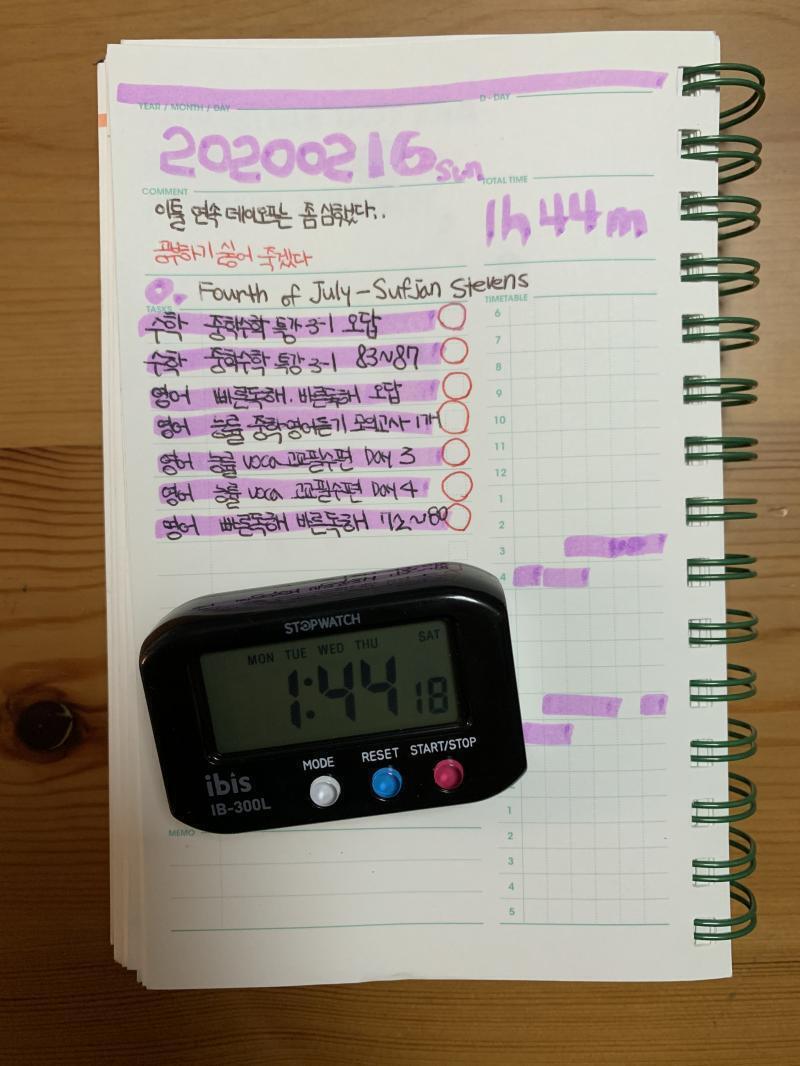 YEAR / MONTH / DAY
D - DAY
20200216 sun
COMMENT
이틀 연속 데이오프는 좀 심했다..
공부하기 싫어 죽겠다
TOTAL TIME
1h 44m
Fourth of July - Sufjan Stevens
TASKS
수학 중학수학 특강 3-1 오답
수학 중학수학 특강 3-1 83~87
영어 빠른독해. 바른독해 오답
영어 능률 중학영어듣기 모의고사 1개
영어 능률 voca 고교필수편 Day 3
영어 능률 voca 고교필수편 Day 4
영어 빠른독해 바른독해 72~80
TIMETABLE
6
7
8
9
10
11
12
1
2
3
4
1
2
3
4
5
STOPWATCH
MON TUE WED THU SAT
1:44 18
MODE RESET START/STOP
ibis
IB-300L
MEMO